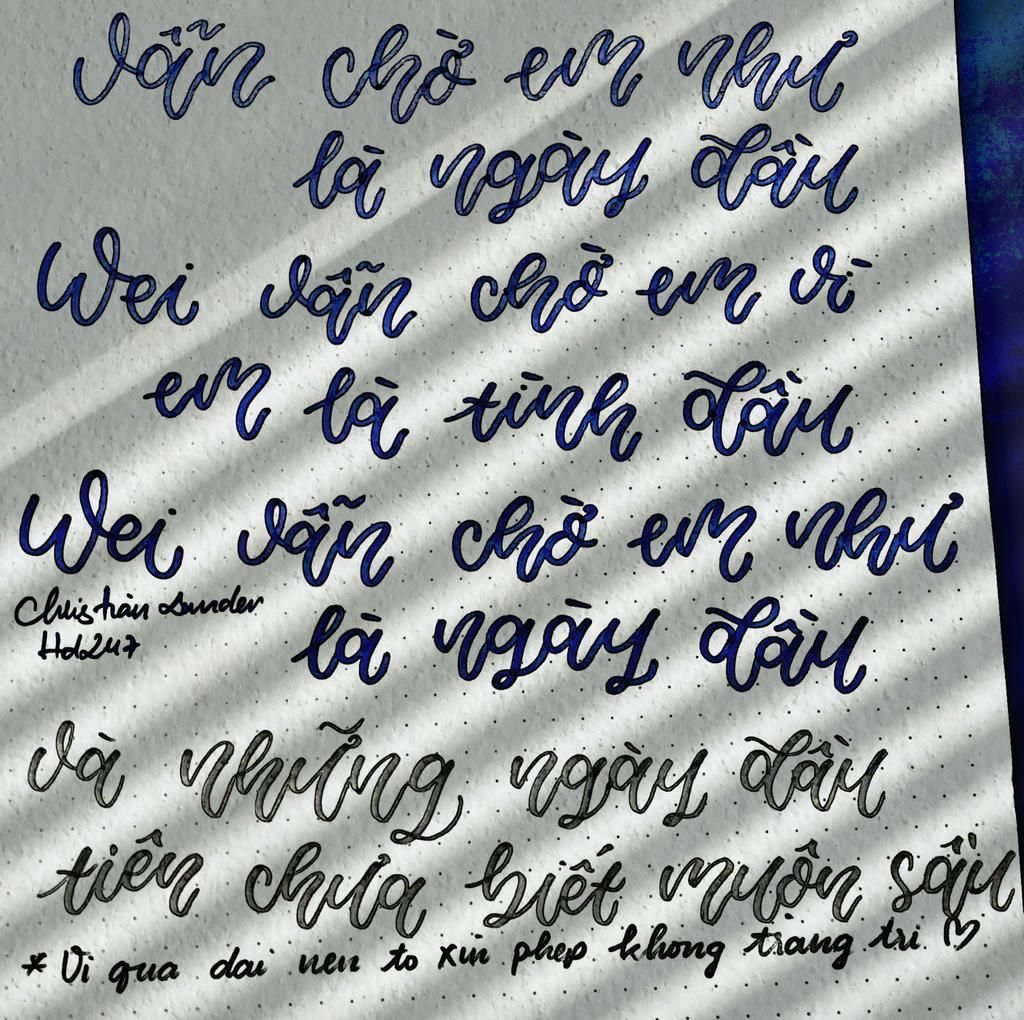 Vẫn chờ em như
là ngày đầu
Wei vẫn chờ em vì
em là tình đầu
Wei vẫn chờ em như
Christian
Hdo247
là ngày đầu
và những ngày đầu
tiên chưa biết muộn sầu
* Vi qua dai nen to xin phep khong trang tri ♡